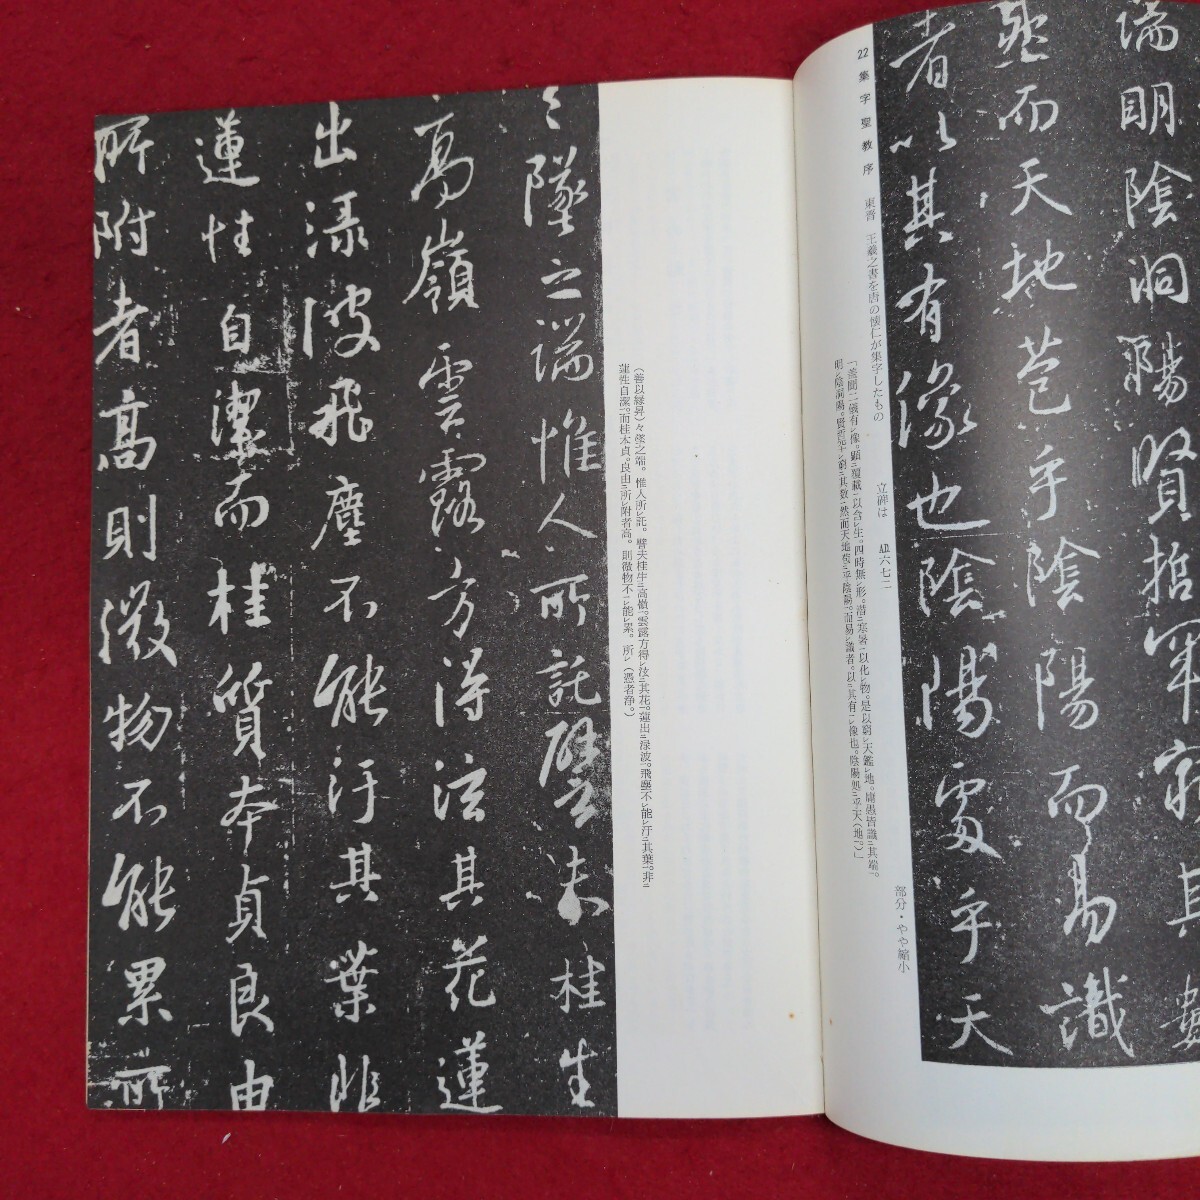 端明陰洞陽賢哲罕窮其數
然而天地苞乎陰陽而易識
者以其有像也陰陽處乎天
22 集字聖教序 東晋 王羲之書を唐の懐仁が集字したもの 立碑は A.D.六七二 部分・やや縮小
「蓋聞二儀有レ像。顕二覆載一以含レ生。四時無レ形。潜二寒暑一以化レ物。是以窺レ天鑑レ地。庸愚皆識二其端一。
明レ陰洞レ陽。賢哲罕レ窮二其数一。然而天地苞二乎陰陽一。而易レ識者。以二其有一レ像也。陰陽処二乎天(地。)」
(善以縁昇)々墜之端。惟人所レ託。譬夫桂生二高嶺一。雲露方得レ泫二其花一。蓮出二淥波一。飛塵不レ能レ汙二其葉一。非二
蓮性自潔一。而桂本貞。良由二所レ附者高。則微物不一レ能レ累。所レ(憑者浄。)
々墜之端惟人所託譬夫桂生
高嶺雲露方得泫其花蓮
出淥波飛塵不能汙其葉非
蓮性自潔而桂質本貞良由
所附者高則微物不能累所